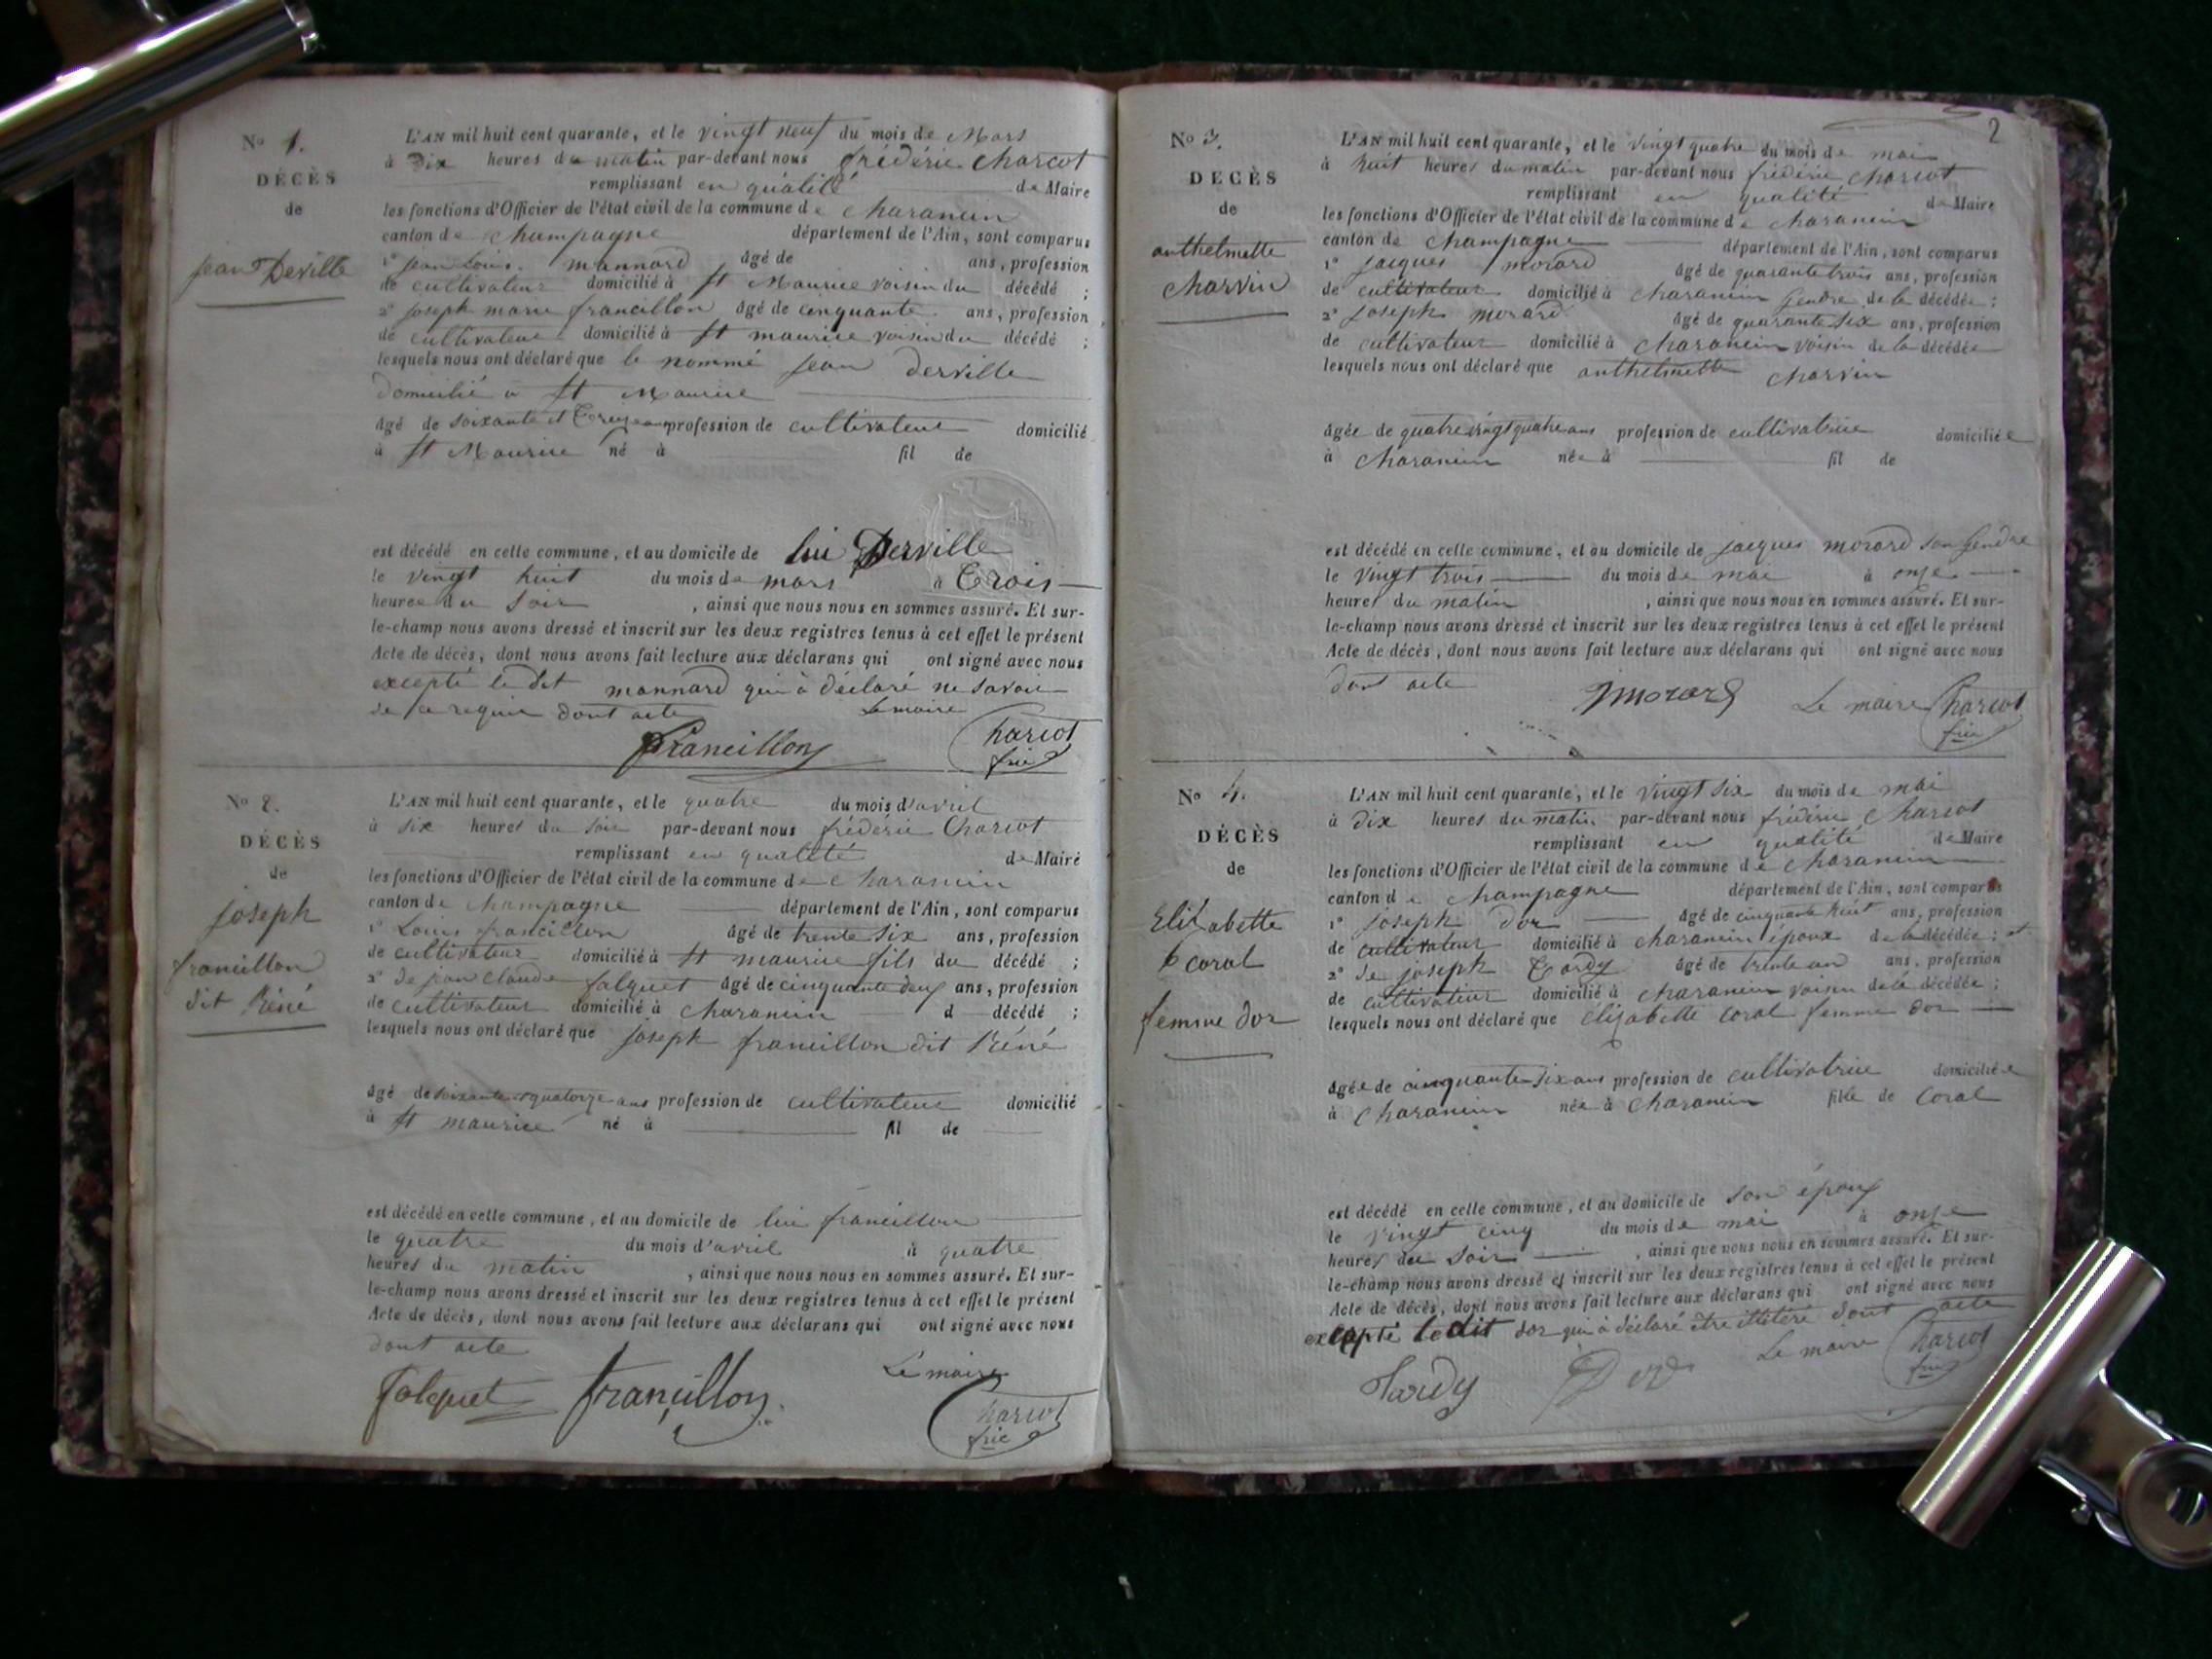 N.o 1.
DÉCÈS
de
jean Deville
L'AN mil huit cent quarante, et le vingt neuf du mois de Mars
à Dix heures du matin par-devant nous frédéric Charcot
remplissant en qualité de Maire
les fonctions d'Officier de l'état civil de la commune de charancin
canton de champagne département de l'Ain, sont comparus
1° jean Louis mannard âgé de ans, profession
de cultivateur domicilié à St Maurice voisin du décédé ;
2° joseph marie francillon âgé de cinquante ans, profession
de cultivateur domicilié à St maurice voisin du décédé ;
lesquels nous ont déclaré que le nommé jean derville
Domicilié à St Maurice
âgé de soixante et profession de cultivateur domicilié
à St Maurice né à fil de
est décédé en celle commune, et au domicile de lui Derville
le vingt huit du mois de mars à Trois
heures du soir , ainsi que nous nous en sommes assuré. Et sur-
le-champ nous avons dressé et inscrit sur les deux registres tenus à cet effet le présent
Acte de décès, dont nous avons fait lecture aux déclarans qui ont signé avec nous
excepté le dit mannard qui à déclaré ne savoir
de ce requis dont acte Le maire
francillon Charcot
fric
N.o 2.
DÉCÈS
de
joseph
francillon
dit Réné
L'AN mil huit cent quarante, et le quatre du mois d'avril
à six heures du soir par-devant nous frédéric Charcot
remplissant en qualité de Maire
les fonctions d'Officier de l'état civil de la commune de charancin
canton de champagne département de l'Ain, sont comparus
1° Louis francillon âgé de trente six ans, profession
de cultivateur domicilié à St maurice fils du décédé ;
2° de jean claude falquet âgé de cinquante deux ans, profession
de cultivateur domicilié à charancin d décédé ;
lesquels nous ont déclaré que joseph francillon dit Réné
âgé de soixante et quatorze ans profession de cultivateur domicilié
à St maurice né à fil de
est décédé en celle commune, et au domicile de lui francillon
le quatre du mois d'avril à quatre
heures du matin , ainsi que nous nous en sommes assuré. Et sur-
le-champ nous avons dressé et inscrit sur les deux registres tenus à cet effet le présent
Acte de décès, dont nous avons fait lecture aux déclarans qui ont signé avec nous
dont acte
Le maire
falquet francillon Charcot
fric
2
N.o 3.
DECÈS
de
anthelmette
charvin
L'AN mil huit cent quarante, et le vingt quatre du mois de mai
à huit heures du matin par-devant nous frédéric charcot
remplissant en qualité de Maire
les fonctions d'Officier de l'état civil de la commune de charancin
canton de champagne département de l'Ain, sont comparus
1° jacques morard âgé de quarante trois ans, profession
de cultivateur domicilié à charancin gendre de la décédée ;
2° joseph morard âgé de quarante six ans, profession
de cultivateur domicilié à charancin voisin de la décédée
lesquels nous ont déclaré que anthelmette charvin
âgée de quatre vingt quatre ans profession de cultivatrice domiciliée
à charancin née à fil de
est décédé en celle commune, et au domicile de jacques morard son gendre
le vingt trois du mois de mai à onze
heures du matin , ainsi que nous nous en sommes assuré. Et sur-
le-champ nous avons dressé et inscrit sur les deux registres tenus à cet effet le présent
Acte de décès, dont nous avons fait lecture aux déclarans qui ont signé avec nous
dont acte
jmorard Le maire Charcot
fric
N.o 4.
DÉCÈS
de
Elizabette
coral
femme dor
L'AN mil huit cent quarante, et le vingt six du mois de mai
à dix heures du matin par-devant nous frédéric charcot
remplissant en qualité de Maire
les fonctions d'Officier de l'état civil de la commune de charancin
canton de champagne département de l'Ain, sont comparus
1° joseph dor âgé de cinquante huit ans, profession
de cultivateur domicilié à charancin époux de la décédée ; et
2° de joseph Tardy âgé de trente un ans, profession
de cultivateur domicilié à charancin voisin de la décédée ;
lesquels nous ont déclaré que elizabette coral femme dor
âgée de cinquante six ans profession de cultivatrice domiciliée
à charancin née à charancin fille de coral
est décédé en celle commune, et au domicile de son époux
le vingt cinq du mois de mai à onze
heures du soir , ainsi que nous nous en sommes assuré. Et sur-
le-champ nous avons dressé et inscrit sur les deux registres tenus à cet effet le présent
Acte de décès, dont nous avons fait lecture aux déclarans qui ont signé avec nous
excepté le dit dor qui à déclaré être illiteré dont acte
Le maire Charcot
fric
Tardy